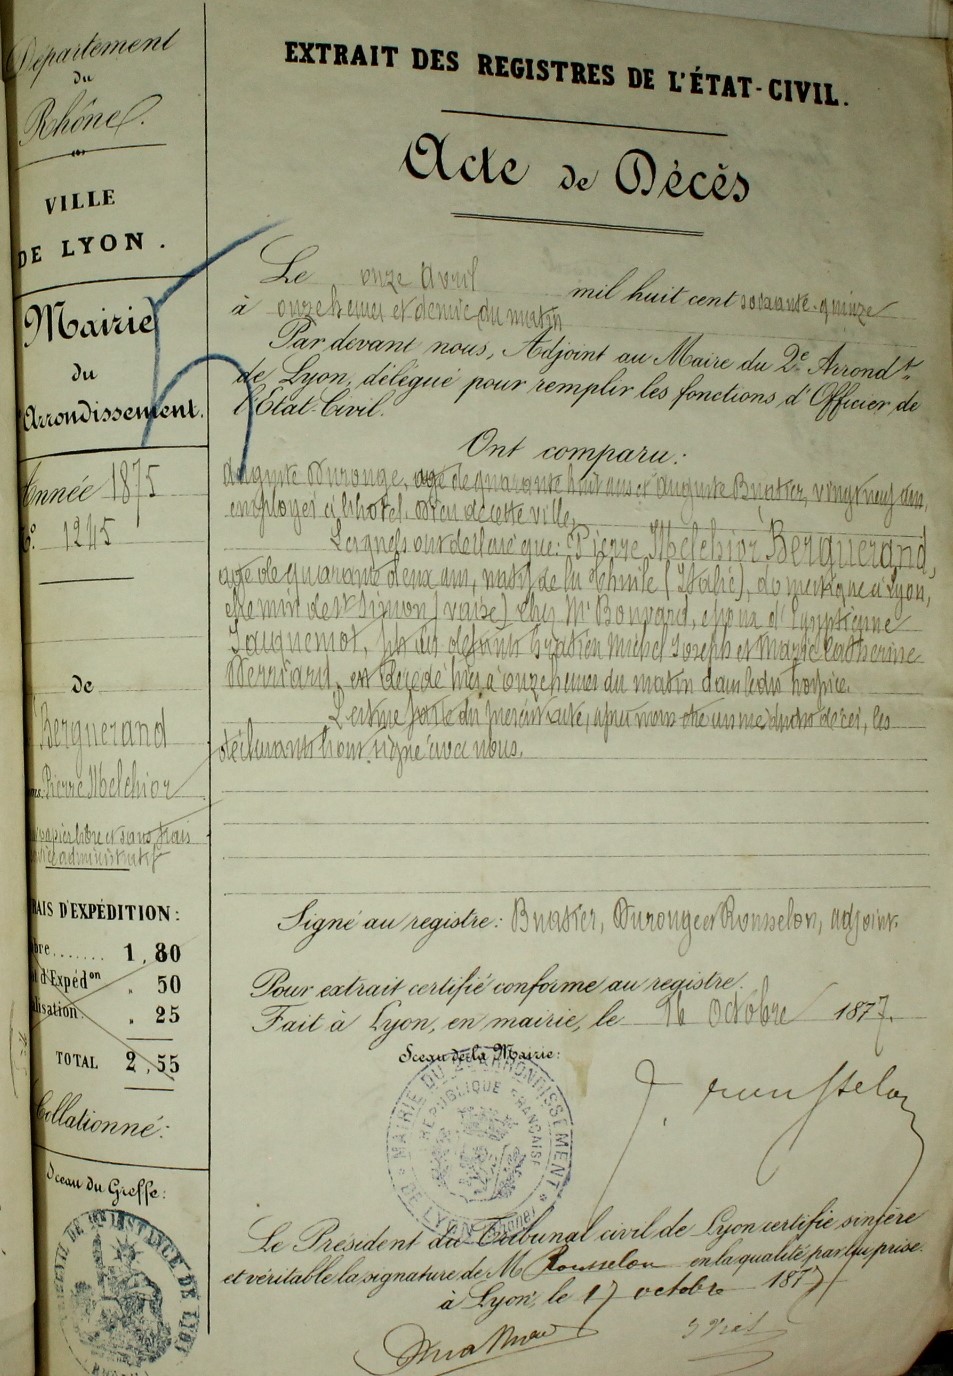 Département
du
Rhône.
VILLE
DE LYON.
Mairie
du
Arrondissement.
Année 1875
N.º 1245
de
Berguerand
Pierre Melchior
papier libre et sans frais
administratif
FRAIS D'EXPÉDITION:
1,80
d'Expédon " 50
" 25
TOTAL 2,55
Collationné:
Sceau du Greffe:
EXTRAIT DES REGISTRES DE L'ÉTAT-CIVIL.
Acte de Décès
Le onze Avril mil huit cent soixante-quinze
à onze heures et demie du matin
Par devant nous, Adjoint au Maire du 2e Arrondt.
de Lyon, délégué pour remplir les fonctions d'Officier de
l'Etat-Civil.
Ont comparu:
Auguste Duronge, agé de quarante huit ans et Auguste Buatier, vingt neuf ans,
employés à l'hotel Dieu de cette ville,
Lesquels ont déclaré que: Pierre Melchior Berguerand,
agé de quarante deux ans, natif de (Italie), domestique à Lyon,
chemin de St Simon (vaise) chez Mr Bonvard, epoux d'
fils des défunts Michel Joseph et Marie Catherine
est décédé hier à onze heures du matin dans ledit hospice.
Lecture faite du présent acte, apres nous etre assuré dudit décès, les
déclarants l'ont signé avec nous.
Signé au registre: Buatier, Duronge et Rousselon, adjoint.
Pour extrait certifié conforme au registre.
Fait à Lyon, en mairie, le 16 Octobre 1877.
Sceau de la Mairie:
MAIRIE DU 2e ARRONDISSEMENT DE LYON (Rhône)
REPUBLIQUE FRANÇAISE
J. Rousselon
Le Président du Tribunal civil de Lyon certifie sincère
et véritable la signature de M Rousselon en la qualité par lui prise.
à Lyon, le 17 octobre 1877